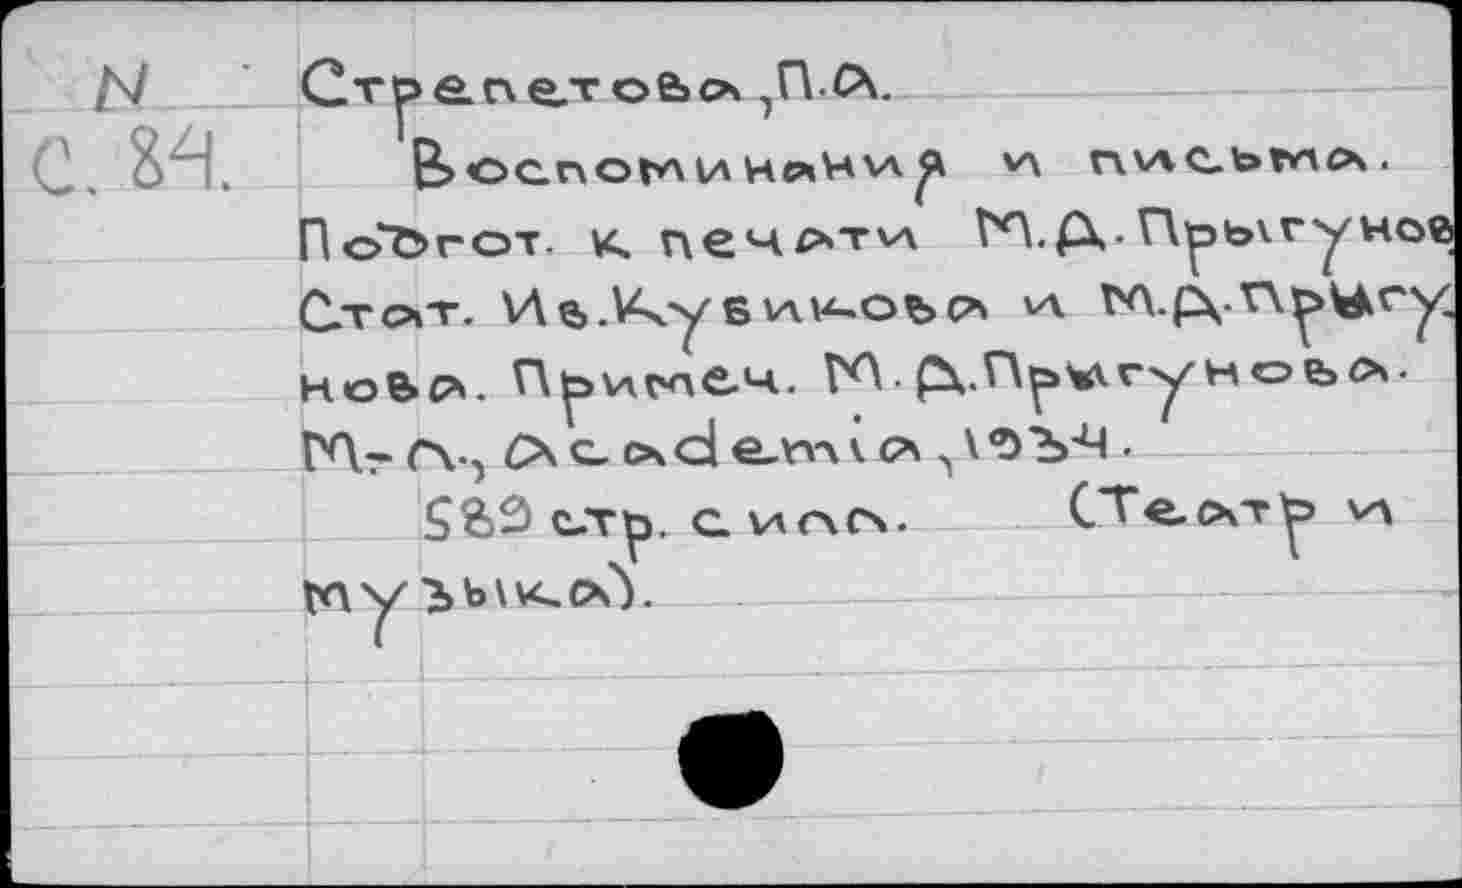 N Стрепетова, П.А.
С. 84. Воспоминания и письма.
Подгот. к печати М.Д. Прыгунов
Стат. Ив. Кубикова и М.Д. Прыгу-
нова. Примеч. М.Д. Прыгунова.
М.-Л., Academia, 1934.
589 стр. с илл. (Театр и
музыка).